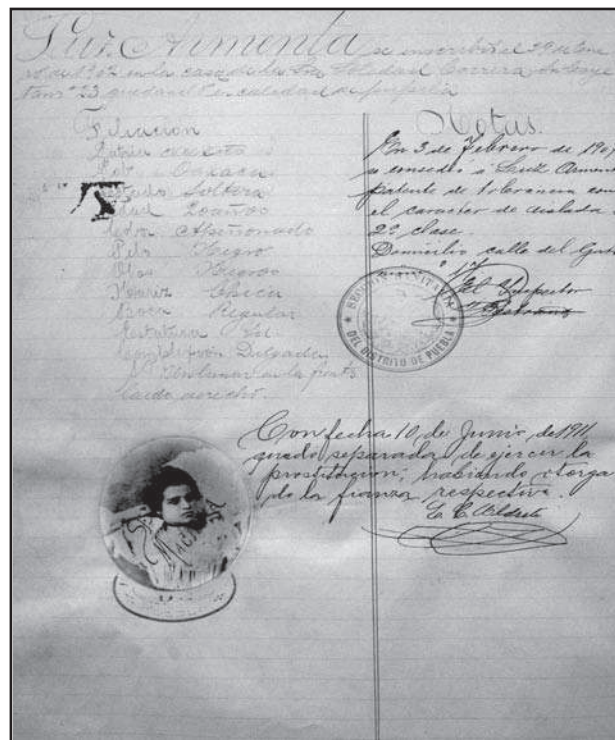 Luz Armenta se inscribió el 29 de Ene
ro de 1902 en la casa de la Sra. Soledad Correra
nº 23 quedando en calidad de pupila
Filiación
Patria
Oaxaca
Estado Soltera
Edad 20 años
Color Apiñonado
Pelo Negro
Ojos Negros
Nariz Chica
Boca Regular
Estatura
Complexión Delgada
Un lunar en la parte
lado derecho.
Notas.
En 3 de Febrero de 190
se concedió a Luz Armen
patente de tolerancia con
el caracter de aislada
2ª clase.
Domicilio calle del
nº 17
El Inspector
SECCION SANITARIA
DEL DISTRITO DE PUEBLA
Con fecha 10 de Junio de 1911
quedó separada de ejercer la
prostitucion; habiendo otorga
do la fianza respectiva.